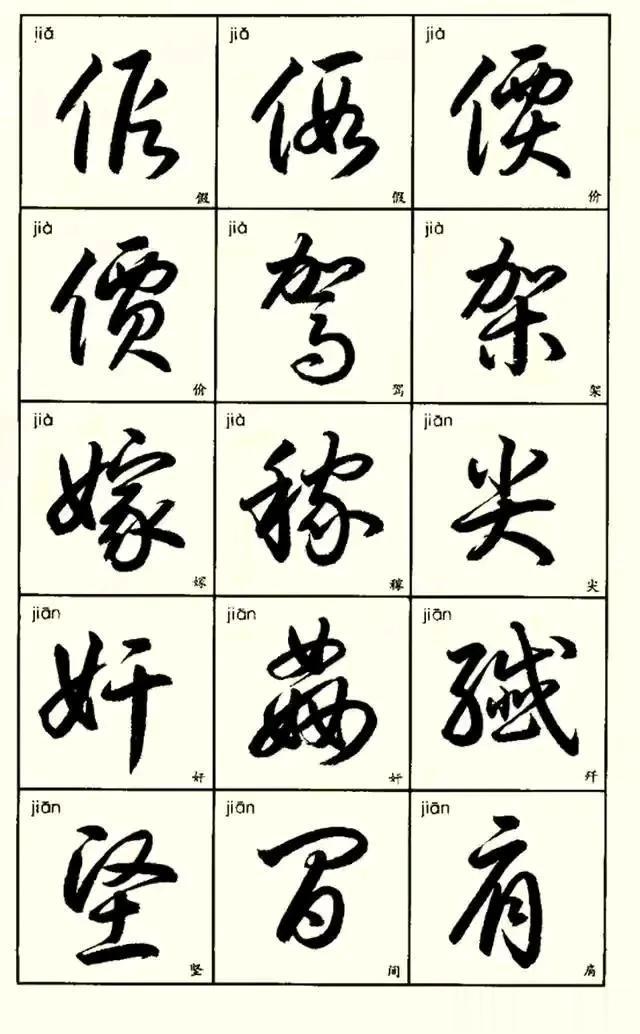 jiǎ jiǎ jià
假 假 價
假 假 价
jià jià jià
價 駕 架
价 驾 架
jià jià jiān
嫁 稼 尖
嫁 稼 尖
jiān jiān jiān
奸 姦 殲
奸 奸 歼
jiān jiān jiān
堅 間 肩
坚 间 肩